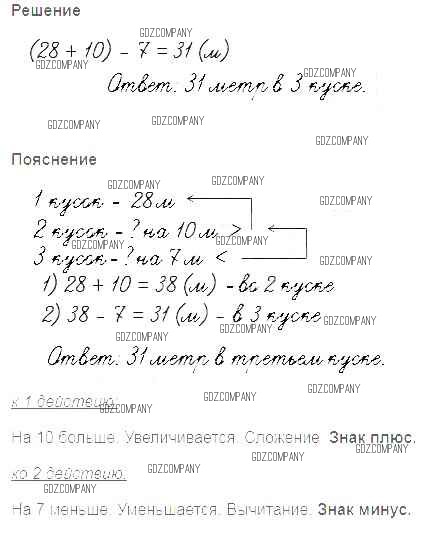 Решение
GDZCOMPANY
(28 + 10) - 7 = 31 (м)
GDZCOMPANY
GDZCOMPANY
Ответ: 31 метр в 3 куске.
GDZCOMPANY
GDZCOMPANY
GDZCOMPANY
Пояснение
GDZCOMPANY
GDZCOMPANY
1 кусок - 28 м
GDZCOMPANY
2 кусок - ? на 10 м >
GDZCOMPANY
GDZCOMPANY
3 кусок - ? на 7 м <
GDZCOMPANY
1) 28 + 10 = 38 (м) - во 2 куске
2) 38 - 7 = 31 (м) - в 3 куске
GDZCOMPANY
GDZCOMPANY
GDZCOMPANY
Ответ: 31 метр в третьем куске.
GDZCOMPANY
GDZCOMPANY
к 1 действию:
GDZCOMPANY
На 10 больше. Увеличивается. Сложение. Знак плюс.
GDZCOMPANY
GDZCOMPANY
ко 2 действию:
GDZCOMPANY
GDZCOMPANY
На 7 меньше. Уменьшается. Вычитание. Знак минус.